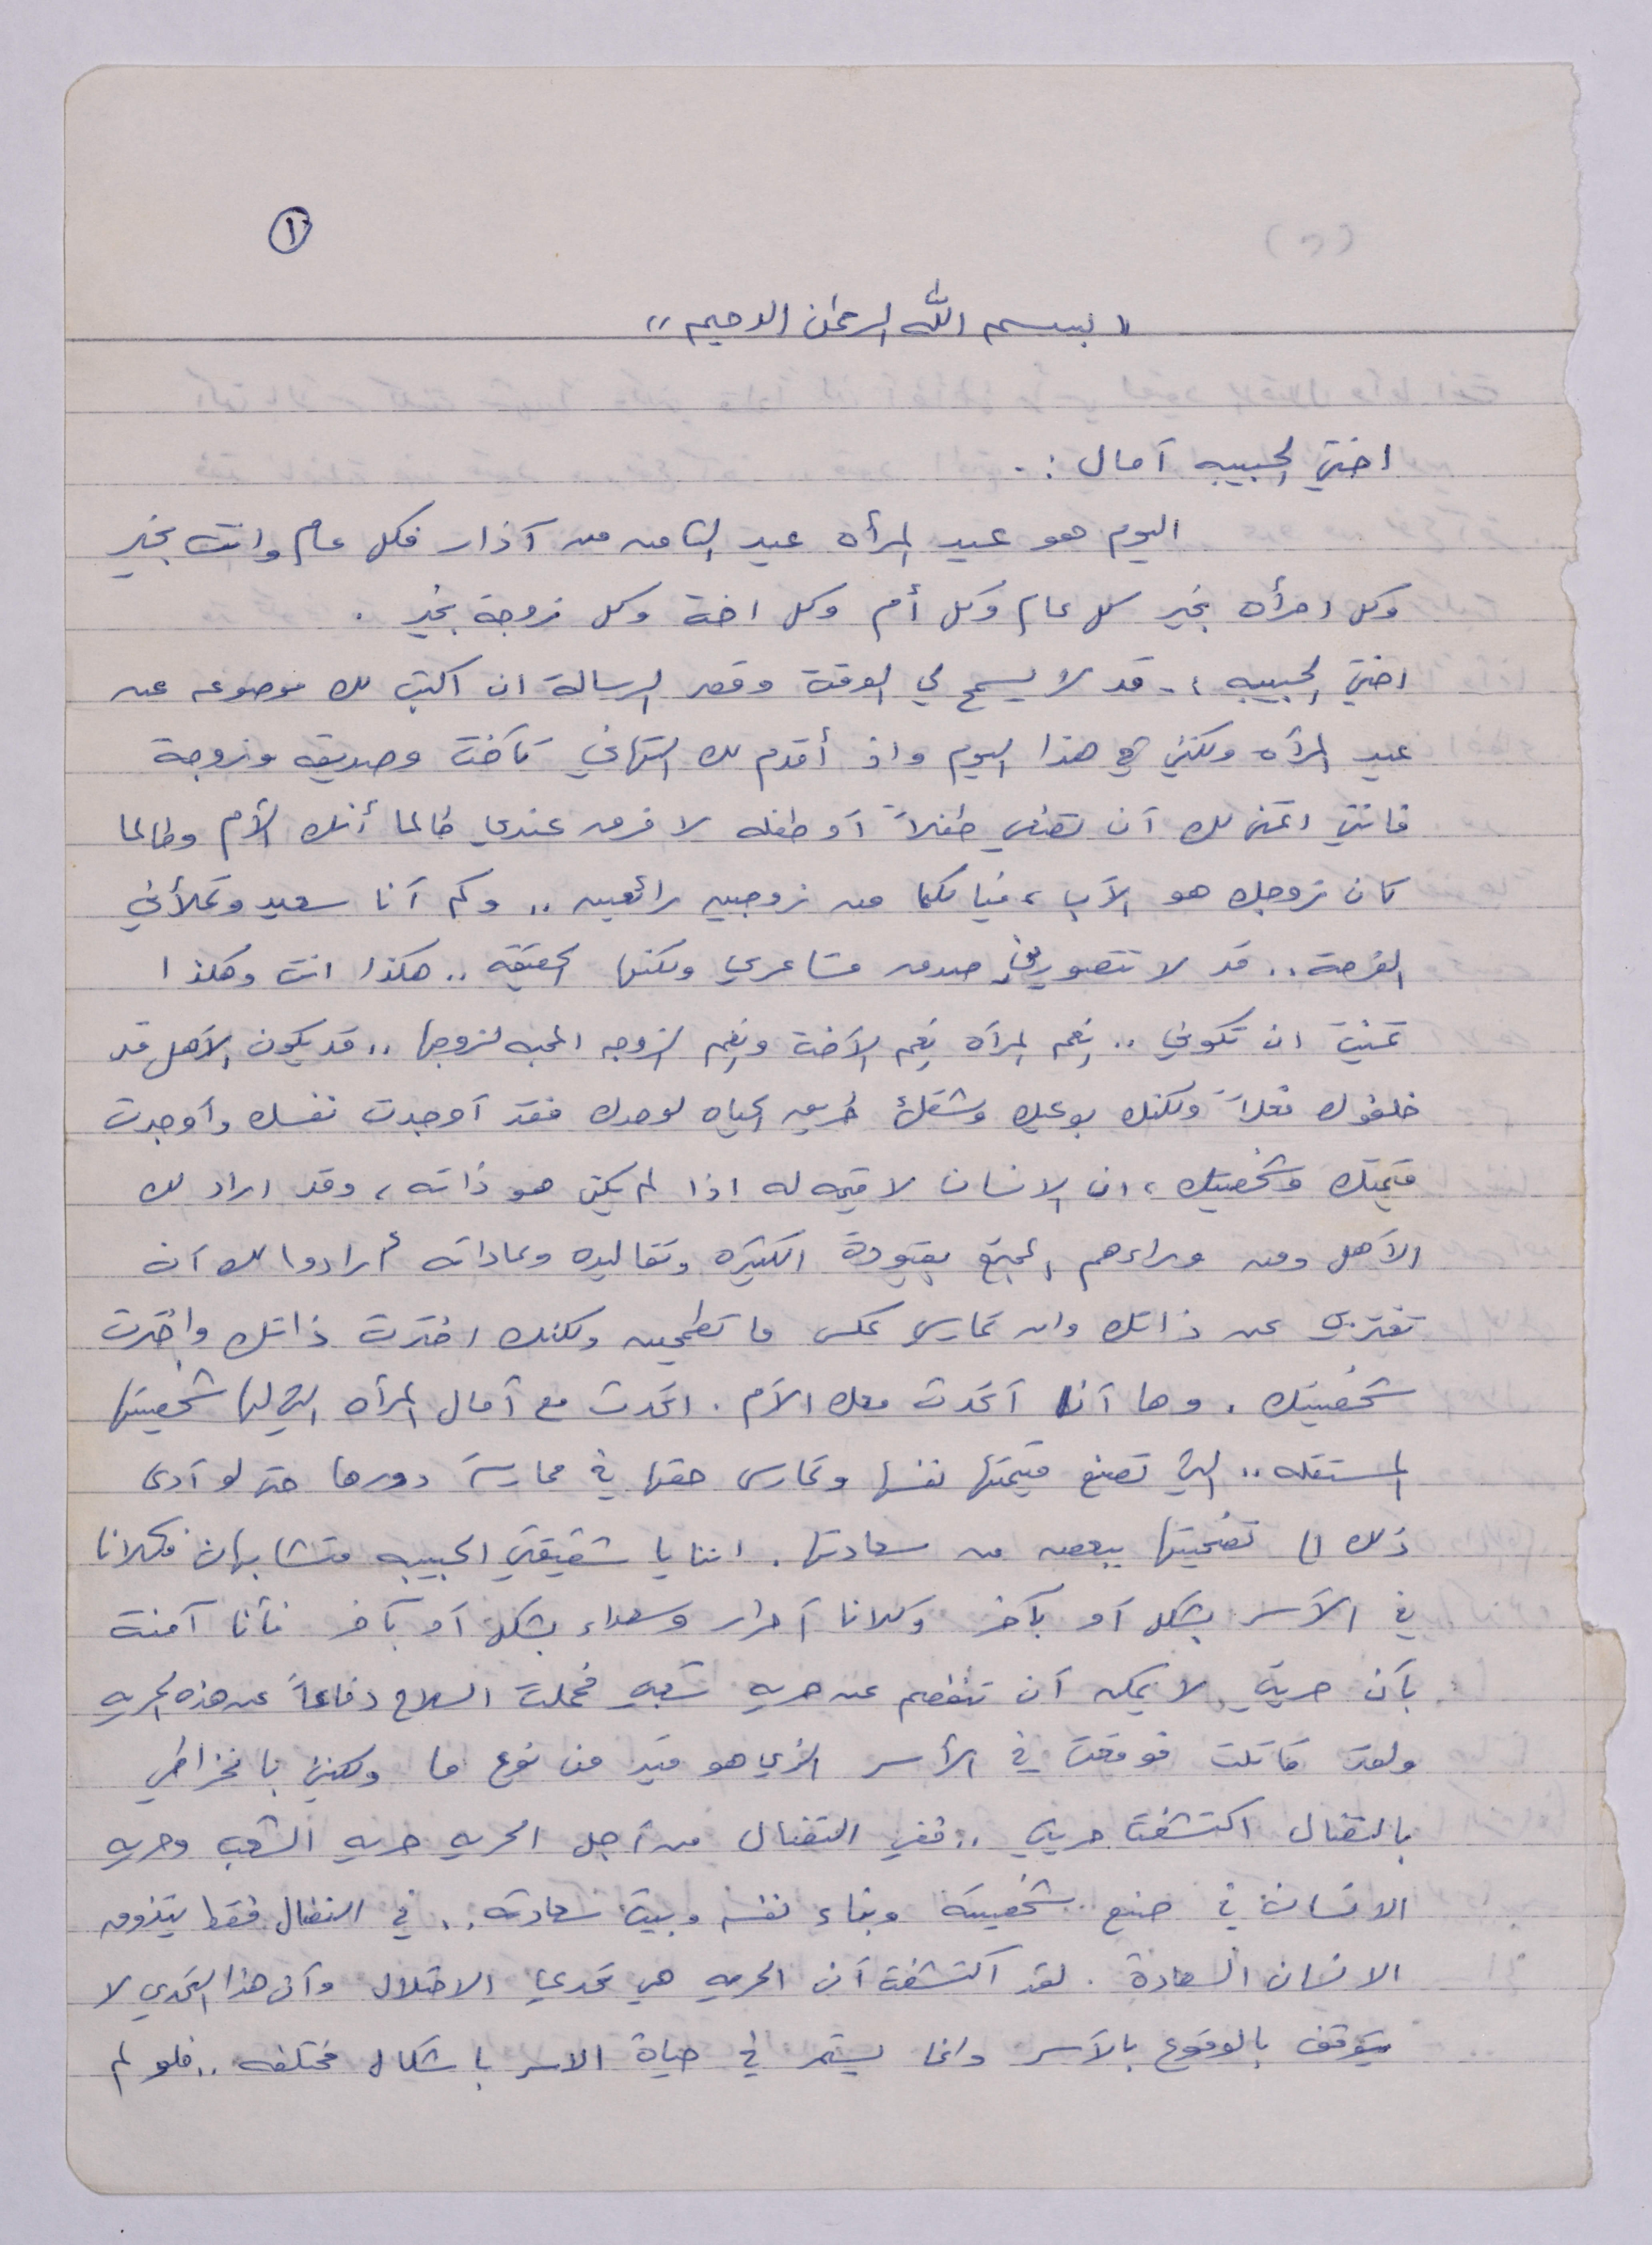 ١
" بسم الله الرحمن الرحيم "
اختي الحبيبه آمال :.
اليوم هو عيد المرأه عيد الثامن من آذار فكل عام وانت بخير
وكل امرأه بخير كل عام وكل أم وكل اخت وكل زوجة بخير .
اختي الحبيبه ،. قد لا يسمح لي الوقت وقصر الرسالة ان اكتب لك موضوع عن
عيد المرأه ولكنني في هذا اليوم واذ أقدم لك التهاني كأخت وصديقه وزوجة
فانني اتمنى لك آن تضعي طفلاً آو طفله لا فرق عندي طالما أنك الأم وطالما
كان زوجك هو الآب ، فيا لكما من زوجين رائعين .. وكم آنا سعيد وتملأني
الفرحة .. قد لا تتصورين صدق مشاعري ولكنها الحقيقه .. هكذا انت وهكذا
تمنيت ان تكوني .. نِعم المرآه نِعم الآخت ونِعم الزوجه المحبه لزوجها .. قد يكون الآهل قد
خلفوك فعلاً ولكنك بوعيك وشقك طريق الحياه لوحدك فقد آوجدت نفسك وآوجدت
قيمتك وشخصيتك ، ان الانسان لا قيمه له اذا لم يكن هو ذاته ، وقد اراد لك
الآهل ومن وراءهم المجتمع بقيودة الكثيره وتقاليده وعاداته أرادوا لك آن
تغتربي عن ذاتك وان تمارسي عكس ما تطمحين ولكنك اخترت ذاتك واخترت
شخصيتك . وها آنا آتحدت معك الآم . اتحدت مع آمال المرأه التي لها شخصيتها
المستقله .. التي تصنع قيمتها نفسها وتمارس حقها في ممارسة دورها حتى لو آدى
ذلك الى تضحيتها ببعض من سعادتها . اننا يا شقيقتي الحبيبه متشابهان فكلانا
في الآسر بشكل آو بآخر وكلانا آحرار وسعداء بشكل آو بآخر فأنا آمنت
بآن حريتي لا يمكن آن تنفصم عن حرية شعبي فحملت السلاح دفاعاً عن هذه الحريه
ولقد قاتلت فوقعت في الأسر الذي هو قيد من نوع ما ولكنني بانخراطي
بالنضال اكتشفت حريتي .. ففي النضال من آجل الحريه حريه الشعب وحريه
الانسان في صنع شخصيته وبناء نفسه وبيت سعادته .. في النضال فقط يتذوق
الانسان السعادة . لقد آكتشفت آن الحريه هي تحدي الاحتلال وآن هذا التحدي لا
يتوقف بالوقوع بالآسر وانما يستمر في حياة الاسر باشكال مختلفه .. فلو لم